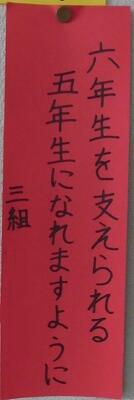 六年生を支えられる
五年生になれますように
三組